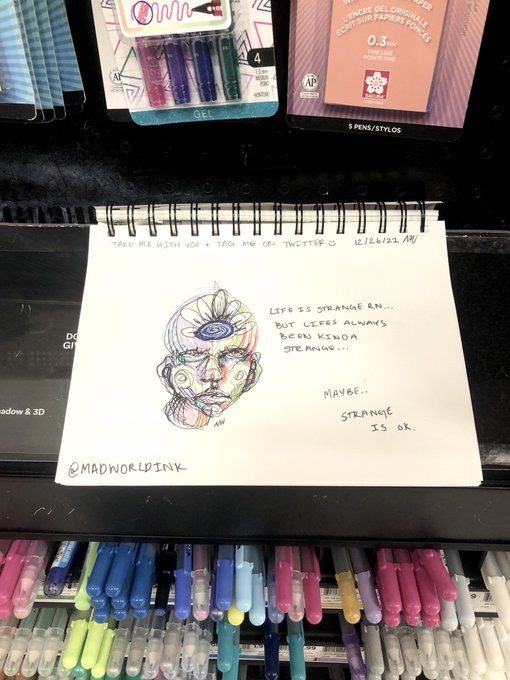 4
1.0 MM
MEDIUM
POINT
AP
GEL
L'ENCRE GEL ORIGINALE
ÉCRIT SUR PAPIERS FONCÉS
0.3 MM
FINE LINE
POINTE FINE
SAKURA
AP
5 PENS/STYLOS
TAKE ME WITH YOU + TAG ME ON TWITTER 12/26/21 NW
LIFE IS STRANGE RN...
BUT LIFES ALWAYS
BEEN KINDA
STRANGE...
MAYBE..
STRANGE
IS OK.
NW
@MADWORLDINK
adow & 3D